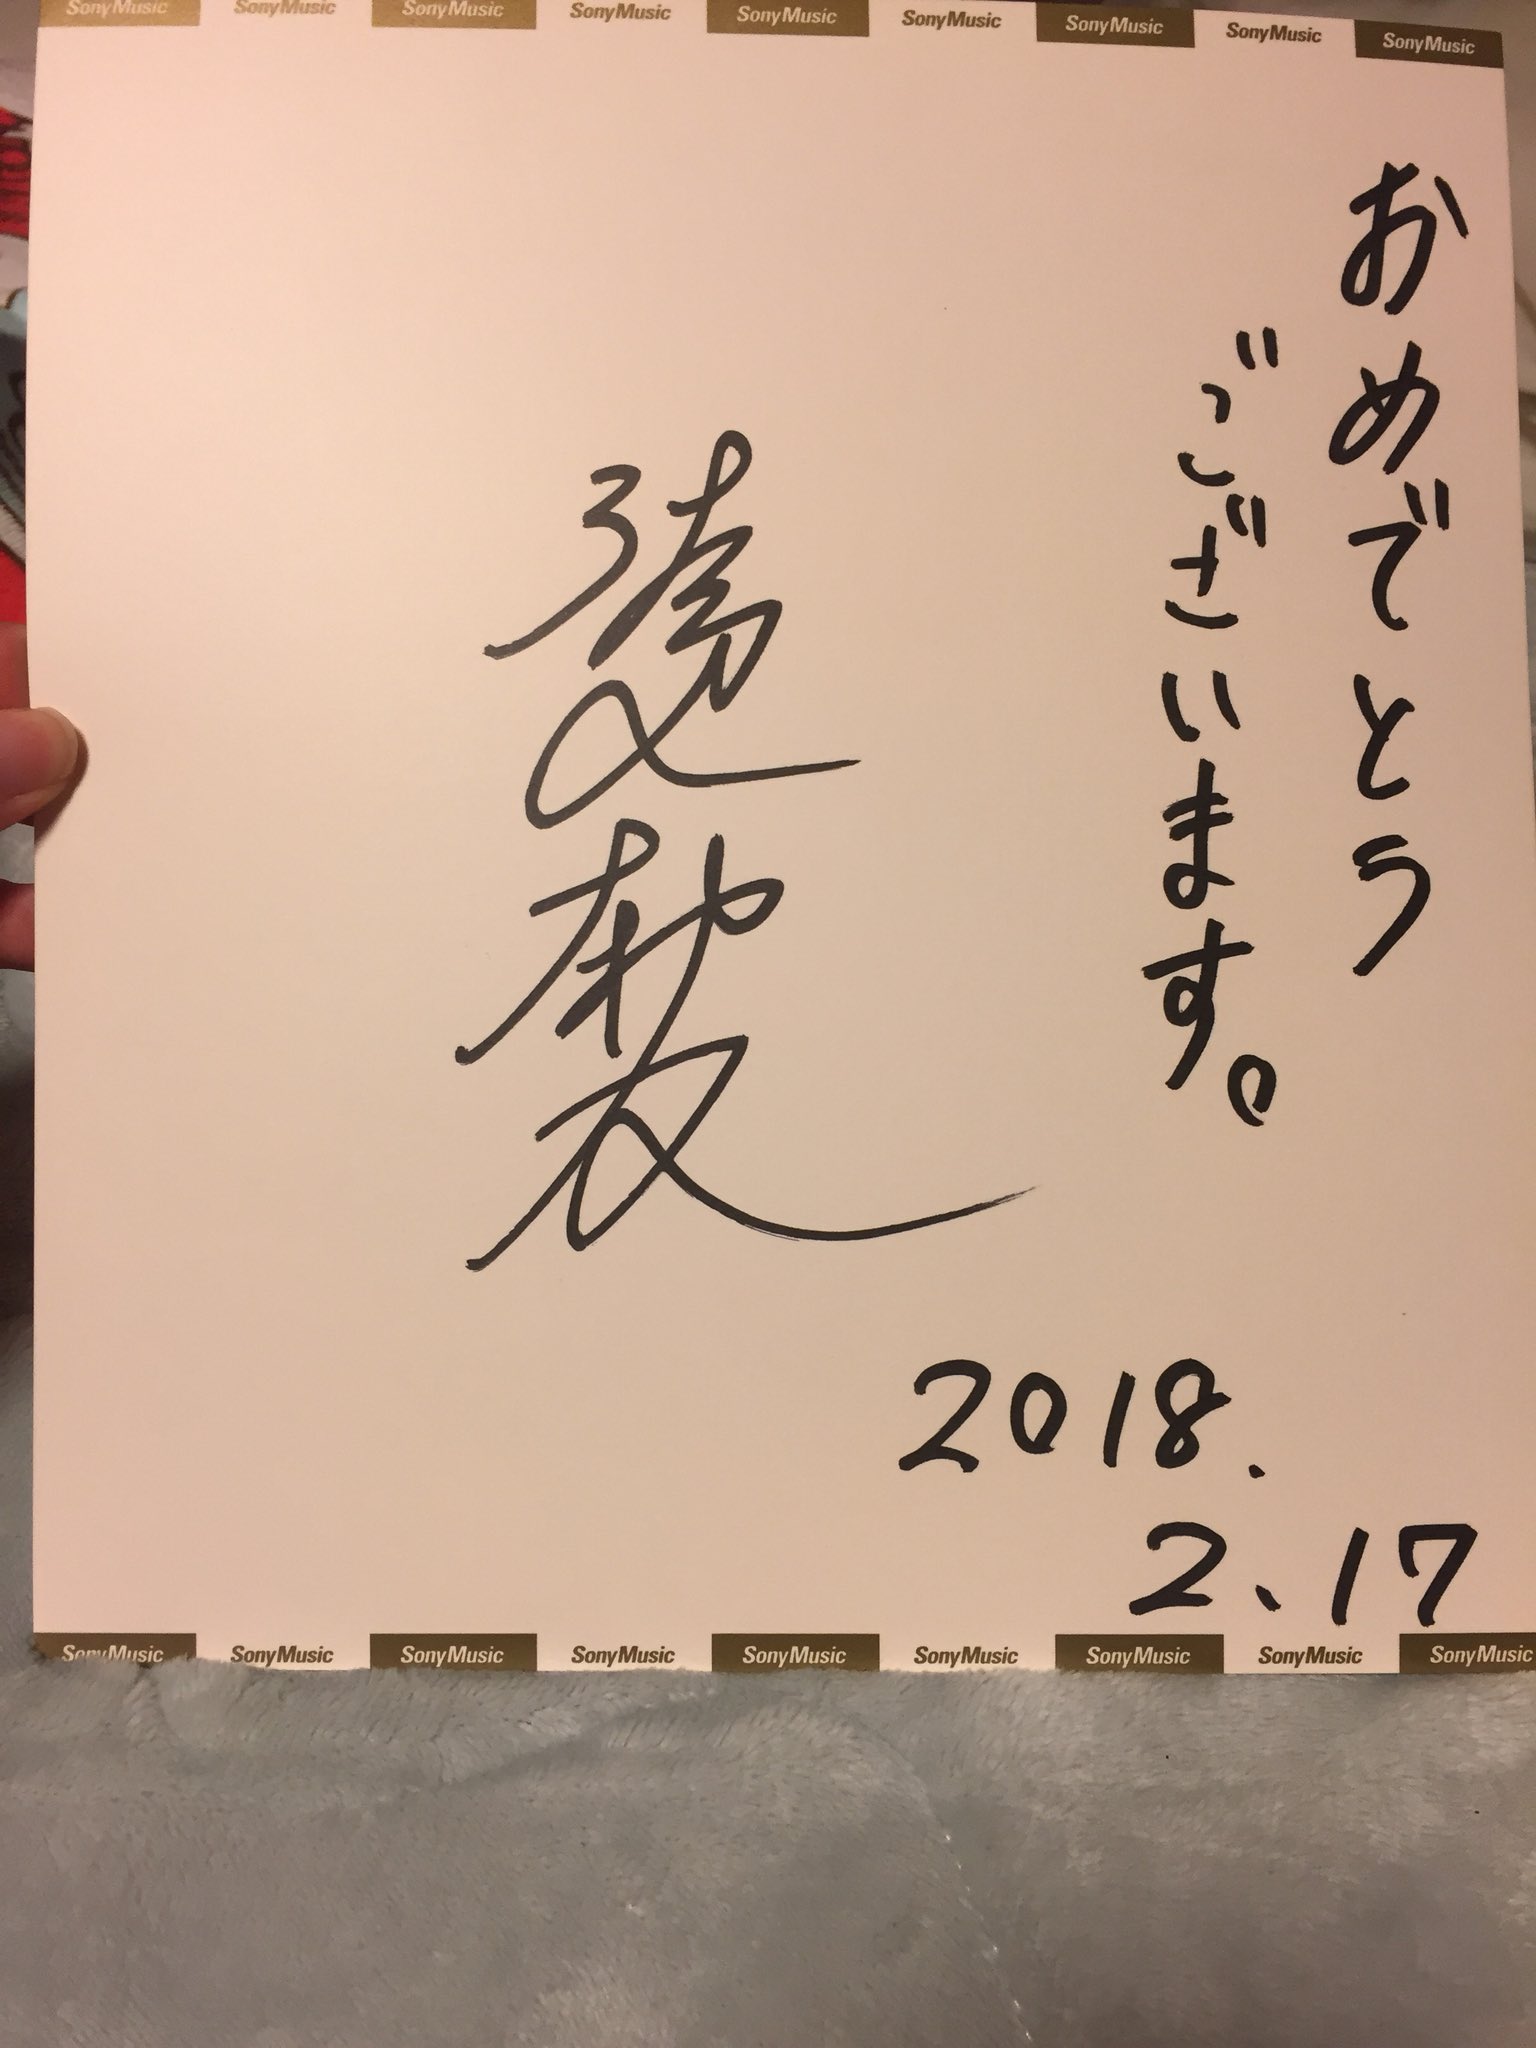 SonyMusic SonyMusic SonyMusic SonyMusic SonyMusic SonyMusic SonyMusic SonyMusic SonyMusic
おめでとう
ございます。
2018.
2.17
SonyMusic SonyMusic SonyMusic SonyMusic SonyMusic SonyMusic SonyMusic SonyMusic SonyMusic